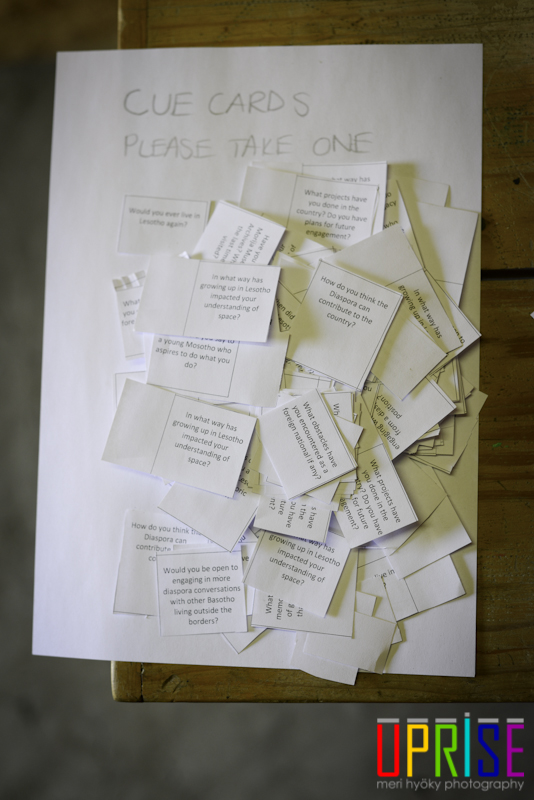 CUE CARDS
PLEASE TAKE ONE
in what way has
What projects have
you done in the
country? Do you have
plans for future
engagement?
Would you ever live in
Lesotho again?
Have you
the last time
In what way has
growing up in Lesotho
impacted your
understanding of
space?
How do you think the
Diaspora can
contribute to the
country?
In what way has
growing up in
a young Mosotho who
aspires to do what you
do?
In what way has
growing up in Lesotho
impacted your
understanding of
space?
What obstacles have
you encountered as a
foreign national if any?
What projects have
you done in the
Do you have
for future
How do you think the
Diaspora can
Would you be open to
engaging in more
diaspora conversations
with other Basotho
living outside the
borders?
way has
growing up in Lesotho
impacted your
understanding of
space?
What
UPRISE
meri hyöky photography